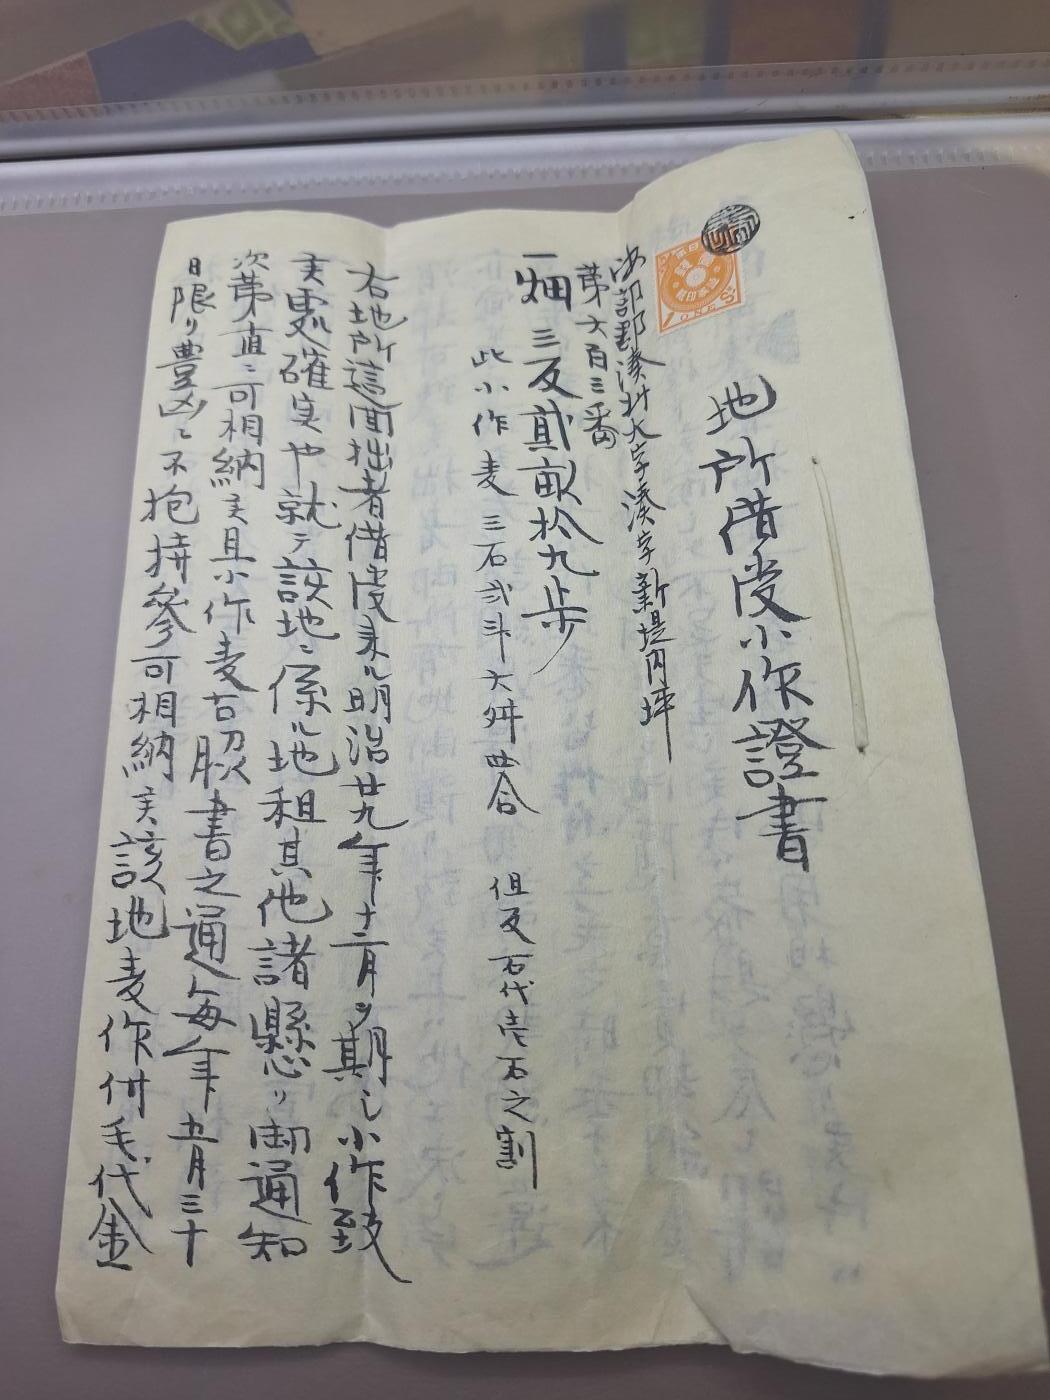 地所借受小作證書
海部郡湊村大字湊字新堤内坪
第六百三番
一畑三反貳畝拾九歩
此小作麦三石弐斗六舛四合 但反石代壱石之割
右地所這回拙者借受来ル明治廿九年十二月ヲ期シ小作致
候処確実也就テ該地ニ係ル地租其他諸懸リ御通知
次第直ニ可相納候且小作麦右股書之通毎年五月三十
日限リ豊凶ニ不抱持参可相納候該地麦作付毛代金
ONE Sⁿ